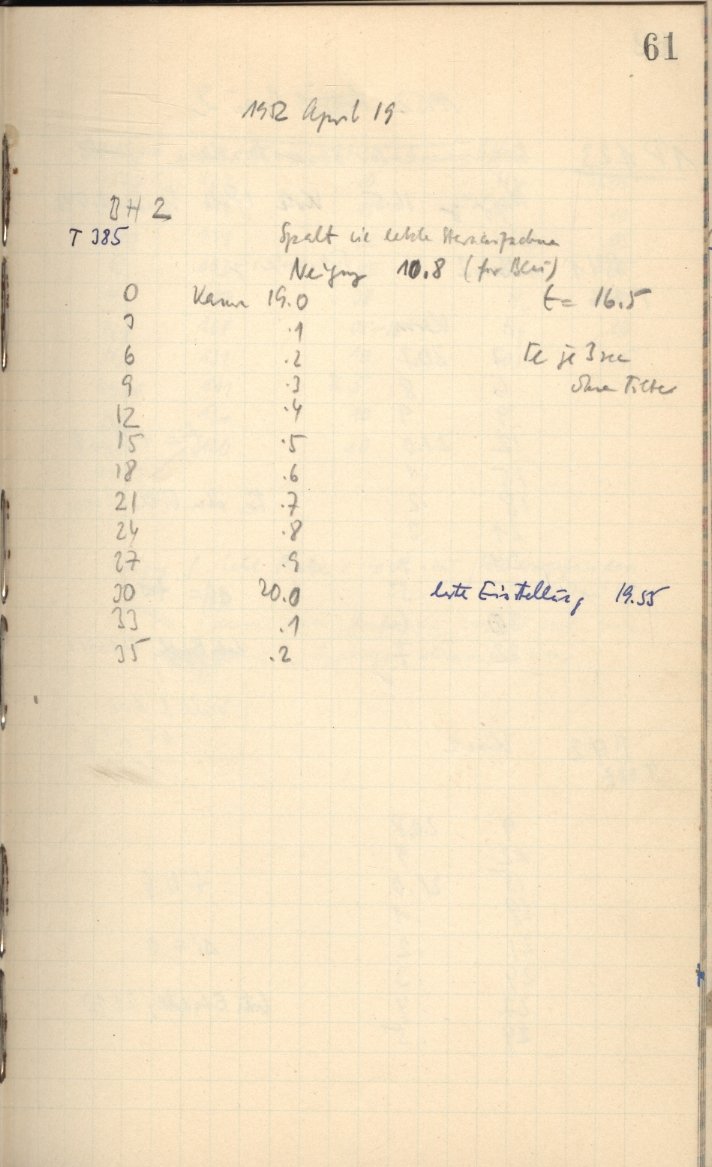 61
1952 April 19.
BH 2
T 385 Spalt wie letzte Sternaufnahme
Neigung 10.8 (für Blau)
0 Kamera 19.0 t = 16.5
3 .1
6 .2 Te je 3 sec
9 .3 ohne Filter
12 .4
15 .5
18 .6
21 .7
24 .8
27 .9
30 20.0 beste Einstellung 19.55
33 .1
35 .2